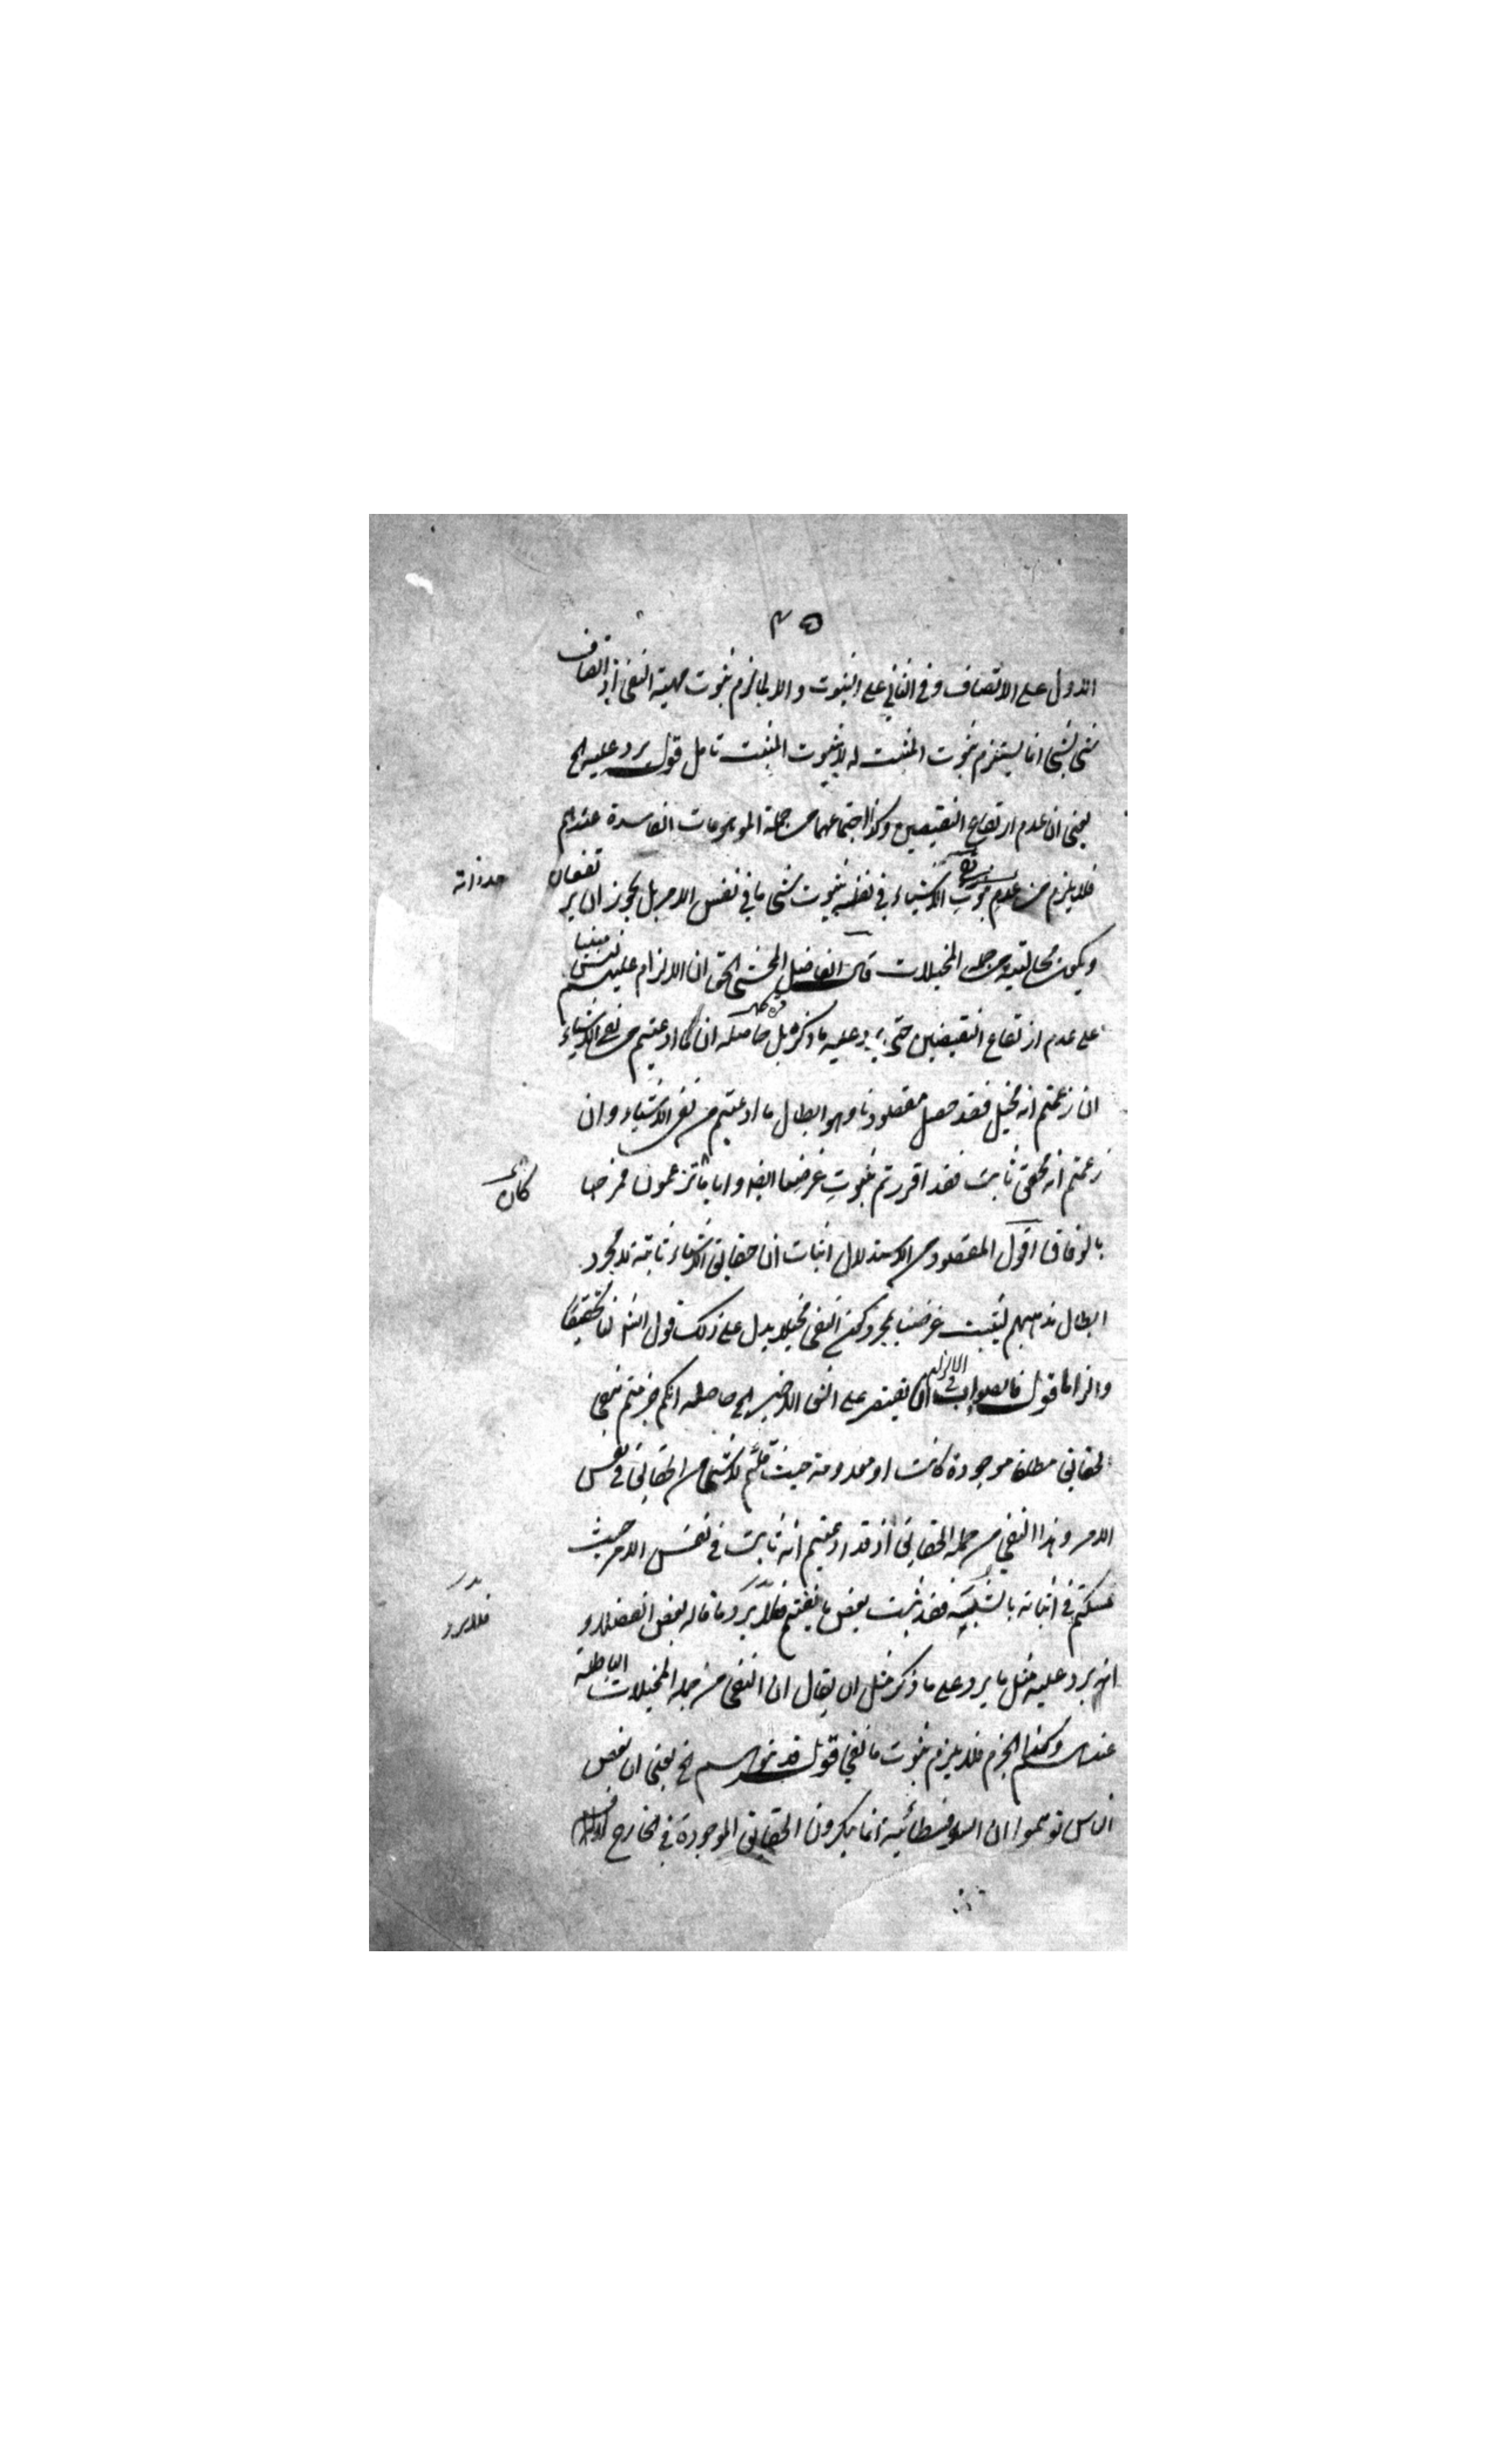 ٤٥
الاول على الاتصاف وفي الثاني على الثبوت والا لما لزم ثبوت مهية النفي اذ اتصاف
شئ بشئ انما يستلزم ثبوت المثبت له لا ثبوت المثبت تامل قوله يرد عليه الخ
يعني ان عدم ارتفاع النقيضين وكذا اجتماعهما من جملة الموهومات الفاسدة عندهم
فلا يلزم من عدم ثبوت الاشياء في نفسه ثبوت شئ ما في نفس الامر بل يجوز ان يرتفعان
ويكون من جملة المخيلات قال الفاضل المحشي الحق ان الالزام عليهم ليس مبنيا
على عدم ارتفاع النقيضين حتى يرد عليه ما ذكره بل حاصله ان ما ادعيتم من نفي الاشياء
ان زعمتم انه مخيل فقد حصل مقصودنا وهو ابطال ما ادعيتم من نفي الاشياء وان
زعمتم انه محقق ثابت فقد اقررتم بثبوت غرضنا ايضا وايا ما تزعمون فمرحبا
كان
بالوفاق اقول المقصود من الاستدلال اثبات ان حقائق الاشياء ثابتة لا مجرد
ابطال مذهبهم ليثبت غرضنا بمجرد كون النفي مخيلا يدل على ذلك قول الش لنا تحقيقا
والزاما قوله فالصواب في الالزام ان يقتصر على الشق الاخير الخ حاصله انكم جزمتم بنفي
الحقائق مطلقا موجودة كانت او معدومة حيث قلتم لا شئ من الحقائق في نفس
الامر وهذا النفي من جملة الحقائق اذ قد ادعيتم انه ثابت في نفس الامر حيث
تمسكتم في اثباته بالشبه فقد ثبت بعض ما نفيتم فلا يرد ما قاله بعض الفضلاء
فلا يرد
انه يرد عليه مثل ما يرد على ما ذكر مثل ان يقال ان النفي من جملة المخيلات الباطلة
عندهم وكذا الجزم فلا يلزم ثبوت ما نفي قوله قد يتوهم الخ يعني ان بعض
الناس توهموا ان السوفسطائية انما ينكرون الحقائق الموجودة في الخارج